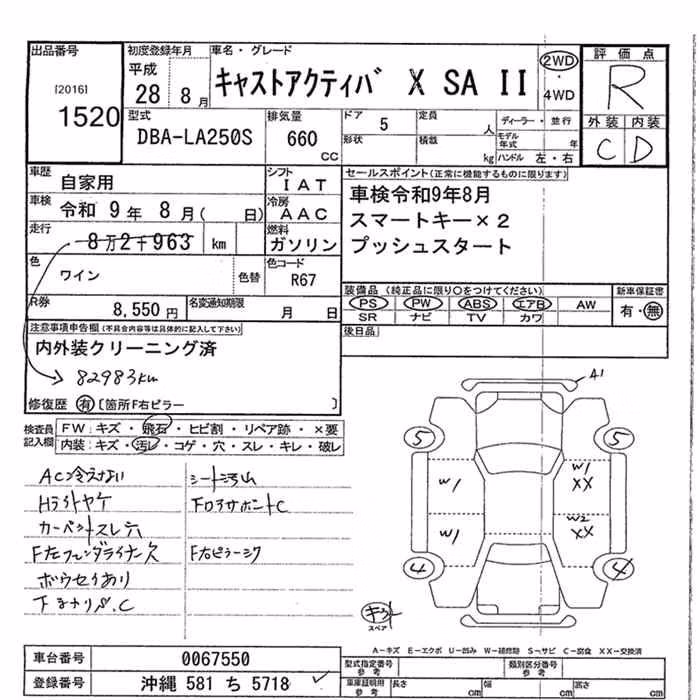 出品番号
[2016]
1520
初度登録年月
平成
28 8月
車名・グレード
キャストアクティバ X SA II
2WD
・
4WD
評価点
R
外装 内装
C D
型式
DBA-LA250S
排気量
660
CC
ドア 5
定員
人
ディーラー・並行
形状
積載
kg
モデル年式
年
ハンドル 左・右
車歴
自家用
シフト
IAT
車検
令和 9年 8月( 日)
冷房
AAC
走行
8万2千963 km
燃料
ガソリン
色
ワイン
色替
色コード
R67
R券
8,550円
名変通知期限
月 日
セールスポイント(正常に機能するものに限ります)
車検令和9年8月
スマートキー×2
プッシュスタート
装備品 (純正品に限り○をつけてください)
PS PW ABS エアB AW
SR ナビ TV カワ
新車保証書
有・無
後日品
注意事項申告欄(不具合内容等は具体的に記入して下さい)
内外装クリーニング済
82983km
修復歴 有 [箇所F右ピラー ]
検査員
記入欄
FW:キズ・飛石・ヒビ割・リペア跡・×要
内装:キズ・汚レ・コゲ・穴・スレ・キレ・破レ
AC冷えない
Hライトヤケ
カーペットスレ穴
F左フェンダライナー欠
ボウセイあり
下まわりS.C
シート汚れ
F右ピラージク
A1
5
5
W1
W1
XX
W1
W2
XX
4
4
スペア
A-キズ E-エクボ U-凹み W-補修跡 S-サビ C-腐食 XX-交換済
車台番号
0067550
登録番号
沖縄 581 ち 5718
型式指定番号
参考
類別区分番号
参考
車庫証明用
参考
長さ
cm
幅
cm
高さ
cm